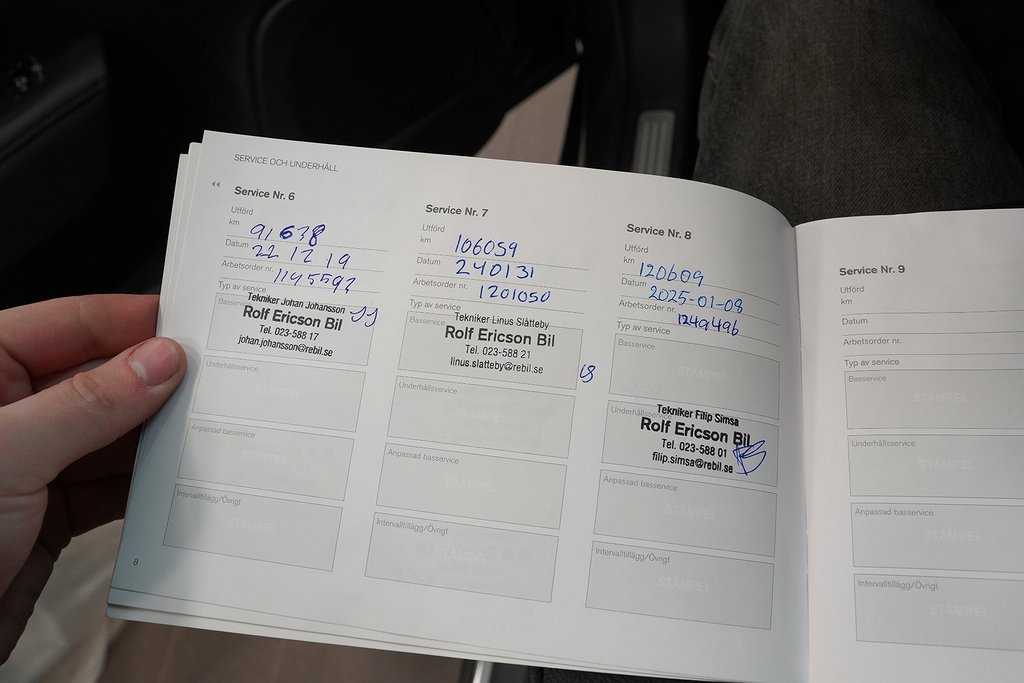 SERVICE OCH UNDERHÅLL
Service Nr. 6
Utförd
km 91638
Datum 22 12 19
Arbetsorder nr. 1145592
Typ av service
Basservice
Tekniker Johan Johansson JJ
Rolf Ericson Bil
Tel. 023-588 17
johan.johansson@rebil.se
Underhållsservice
STÄMPEL
Anpassad basservice
STÄMPEL
Intervalltillägg/Övrigt
STÄMPEL
8
Service Nr. 7
Utförd
km 106059
Datum 240131
Arbetsorder nr. 1201050
Typ av service
Basservice
Tekniker Linus Slåtteby
Rolf Ericson Bil
Tel. 023-588 21
linus.slatteby@rebil.se
LS
Underhållsservice
STÄMPEL
Anpassad basservice
STÄMPEL
Intervalltillägg/Övrigt
STÄMPEL
Service Nr. 8
Utförd
km 120609
Datum 2025-01-08
Arbetsorder nr. 1249496
Typ av service
Basservice
STÄMPEL
Underhållsservice
Tekniker Filip Simsa
Rolf Ericson Bil
Tel. 023-588 01
filip.simsa@rebil.se
Anpassad basservice
STÄMPEL
Intervalltillägg/Övrigt
STÄMPEL
Service Nr. 9
Utförd
km
Datum
Arbetsorder nr.
Typ av service
Basservice
STÄMPEL
Underhållsservice
STÄMPEL
Anpassad basservice
STÄMPEL
Intervalltillägg/Övrigt
STÄMPEL